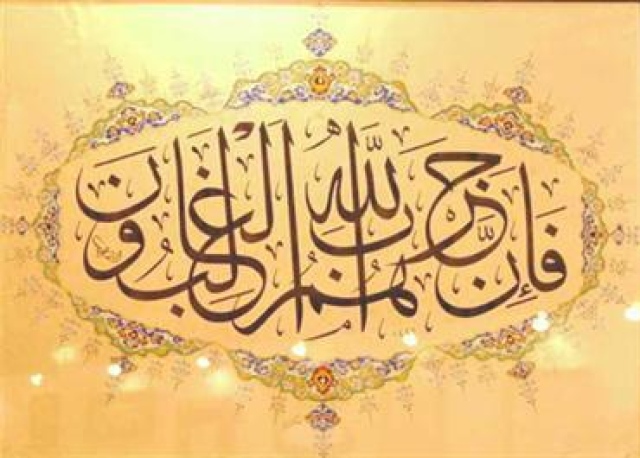 فَإِنَّ حِزْبَ اللَّهِ هُمُ الْغَالِبُونَ